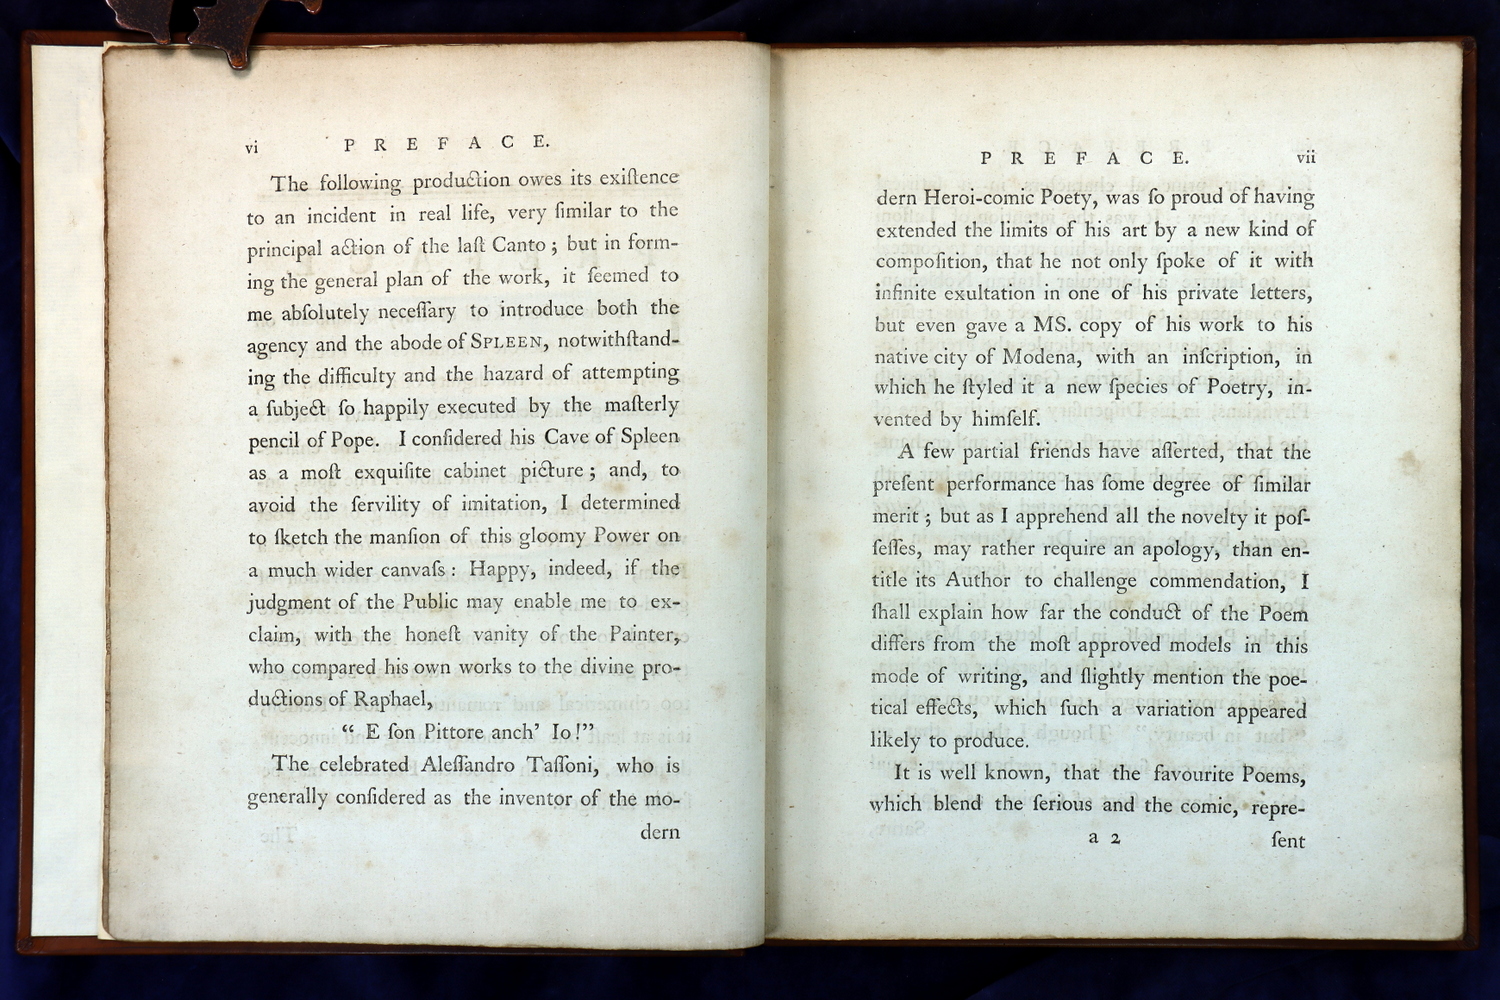 vi P R E F A C E.
The following production owes its exiſtence
to an incident in real life, very ſimilar to the
principal action of the laſt Canto; but in form-
ing the general plan of the work, it ſeemed to
me abſolutely neceſſary to introduce both the
agency and the abode of SPLEEN, notwithſtand-
ing the difficulty and the hazard of attempting
a ſubject ſo happily executed by the maſterly
pencil of Pope. I conſidered his Cave of Spleen
as a moſt exquiſite cabinet picture; and, to
avoid the ſervility of imitation, I determined
to ſketch the manſion of this gloomy Power on
a much wider canvaſs: Happy, indeed, if the
judgment of the Public may enable me to ex-
claim, with the honeſt vanity of the Painter,
who compared his own works to the divine pro-
ductions of Raphael,
“ E ſon Pittore anch’ Io!”
The celebrated Aleſſandro Taſſoni, who is
generally conſidered as the inventor of the mo-
dern
P R E F A C E. vii
dern Heroi-comic Poety, was ſo proud of having
extended the limits of his art by a new kind of
compoſition, that he not only ſpoke of it with
infinite exultation in one of his private letters,
but even gave a MS. copy of his work to his
native city of Modena, with an inſcription, in
which he ſtyled it a new ſpecies of Poetry, in-
vented by himſelf.
A few partial friends have aſſerted, that the
preſent performance has ſome degree of ſimilar
merit; but as I apprehend all the novelty it poſ-
ſeſſes, may rather require an apology, than en-
title its Author to challenge commendation, I
ſhall explain how far the conduct of the Poem
differs from the moſt approved models in this
mode of writing, and ſlightly mention the poe-
tical effects, which ſuch a variation appeared
likely to produce.
It is well known, that the favourite Poems,
which blend the ſerious and the comic, repre-
a 2 ſent